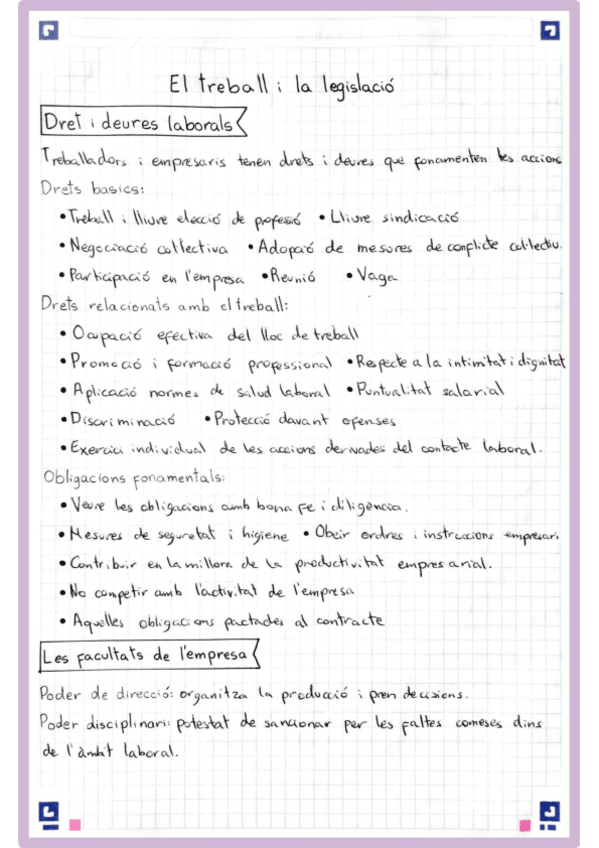 El treball i la legislació
Dret i deures laborals
Treballadors i empresaris tenen drets i deures que fonamenten les accions
Drets basics:
• Treball i lliure elecció de professió • Lliure sindicació
• Negociació col·lectiva • Adopció de mesures de conflicte col·lectiu.
• Participació en l'empresa • Reunió • Vaga
Drets relacionats amb el treball:
• Ocupació efectiva del lloc de treball
• Promoció i formació professional • Respecte a la intimitat i dignitat
• Aplicació normes de salud laboral • Puntualitat salarial
• Discriminació • Protecció davant ofenses
• Exercici individual de les accions derivades del contacte laboral.
Obligacions fonamentals:
• Veure les obligacions amb bona fe i diligència.
• Mesures de seguretat i higiene • Obeir ordres i instruccions empresari
• Contribuir en la millora de la productivitat empresarial.
• No competir amb l'activitat de l'empresa
• Aquelles obligacions pactades al contracte
Les facultats de l'empresa
Poder de direcció: organitza la producció i pren decisions.
Poder disciplinari: potestat de sancionar per les faltes comeses dins
de l'àmbit laboral.